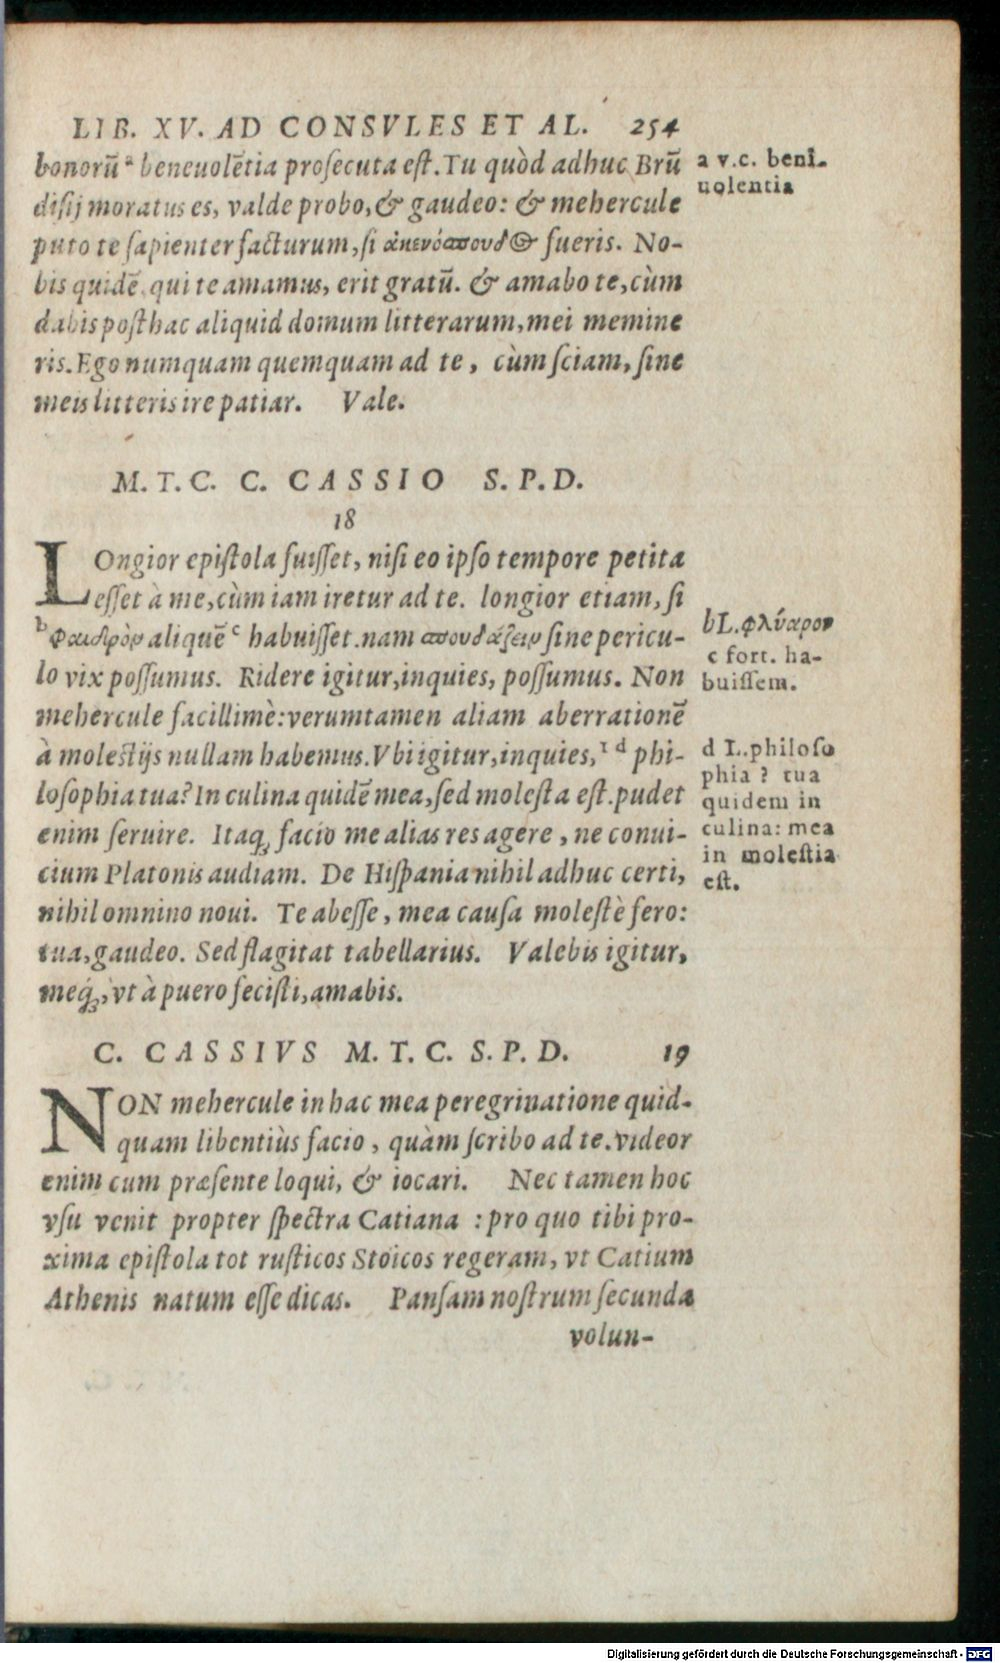 LIB. XV. AD CONSVLES ET AL. 254
bonorũ ᵃ beneuolẽtia prosecuta est. Tu quòd adhuc Brũ
disij moratus es, valde probo, & gaudeo: & mehercule
puto te sapienter facturum, si ἀκενόσπουδος fueris. No-
bis quidẽ, qui te amamus, erit gratũ. & amabo te, cùm
dabis posthac aliquid domum litterarum, mei memine
ris. Ego numquam quemquam ad te, cùm sciam, sine
meis litteris ire patiar. Vale.
a v.c. beni-
uolentia
M. T. C. C. CASSIO S. P. D.
18
LOngior epistola fuisset, nisi eo ipso tempore petita
esset à me, cùm iam iretur ad te. longior etiam, si
ᵇ Φαιδρὸν aliquẽ ᶜ habuisset. nam σπουδάζειν sine pericu-
lo vix possumus. Ridere igitur, inquies, possumus. Non
mehercule facillimè: verumtamen aliam aberrationẽ
à molestijs nullam habemus. Vbi igitur, inquies, ¹ ᵈ phi-
losophia tua? In culina quidẽ mea, sed molesta est. pudet
enim seruire. Itaq; facio me alias res agere, ne conui-
cium Platonis audiam. De Hispania nihil adhuc certi,
nihil omnino noui. Te abesse, mea causa molestè fero:
tua, gaudeo. Sed flagitat tabellarius. Valebis igitur,
meq́;, vt à puero fecisti, amabis.
b L. φλύαρον
c fort. ha-
buissem.
d L. philoso
phia? tua
quidem in
culina: mea
in molestia
est.
C. CASSIVS M. T. C. S. P. D. 19
NON mehercule in hac mea peregrinatione quid-
quam libentiùs facio, quàm scribo ad te. videor
enim cum præsente loqui, & iocari. Nec tamen hoc
vsu venit propter spectra Catiana: pro quo tibi pro-
xima epistola tot rusticos Stoicos regeram, vt Catium
Athenis natum esse dicas. Pansam nostrum secunda
volun-
Digitalisierung gefördert durch die Deutsche Forschungsgemeinschaft - DFG